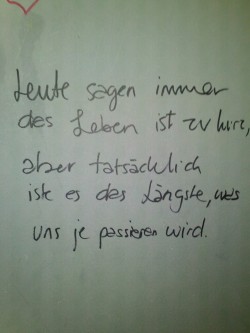 Leute sagen immer
des Leben ist zu kurz,
aber tatsächlich
iste es des Längste, was
uns je passieren wird.